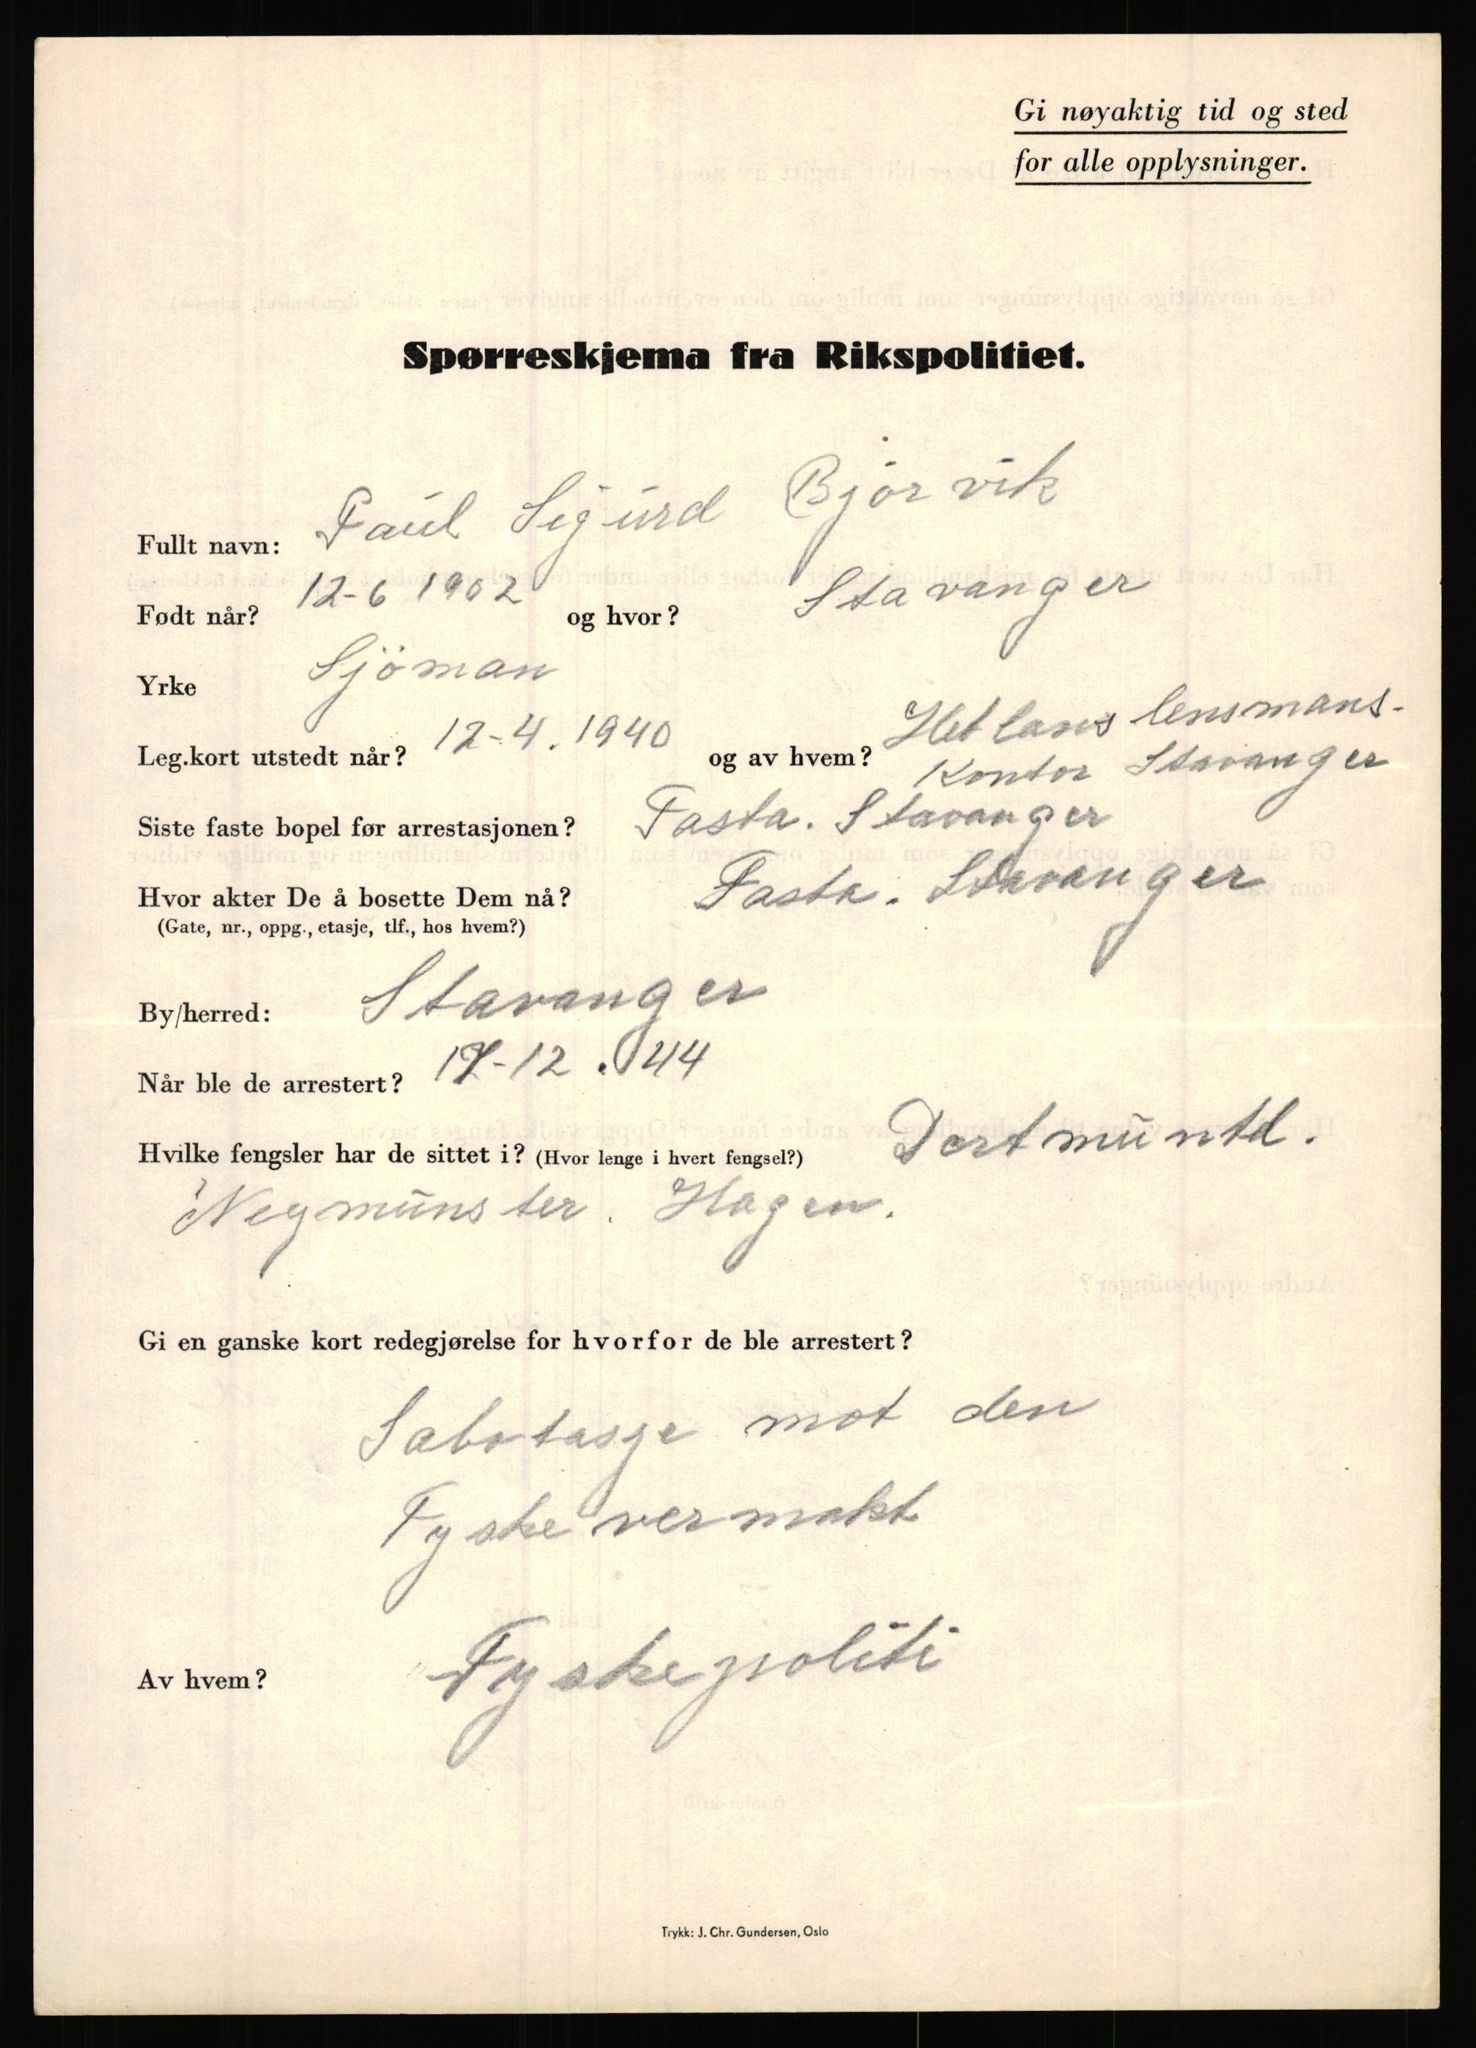 Gi nøyaktig tid og sted
for alle opplysninger.
Spørreskjema fra Rikspolitiet.
Fullt navn: Paul Sigurd Bjørvik
Født når? 12-6 1902 og hvor? Stavanger
Yrke Sjöman
Leg.kort utstedt når? 12-4.1940 og av hvem? Hetlans lensmans-
kontor Stavanger
Siste faste bopel før arrestasjonen? Tasta. Stavanger
Hvor akter De å bosette Dem nå? Tasta. Stavanger
(Gate, nr., oppg., etasje, tlf., hos hvem?)
By/herred: Stavanger
Når ble de arrestert? 17-12.44
Hvilke fengsler har de sittet i? (Hvor lenge i hvert fengsel?) Dortmuntd.
Neymünster. Hagen.
Gi en ganske kort redegjørelse for hvorfor de ble arrestert?
Sabotasje mot den
Tyske vermakt
Av hvem? Tyskepoliti
Trykk: J. Chr. Gundersen, Oslo